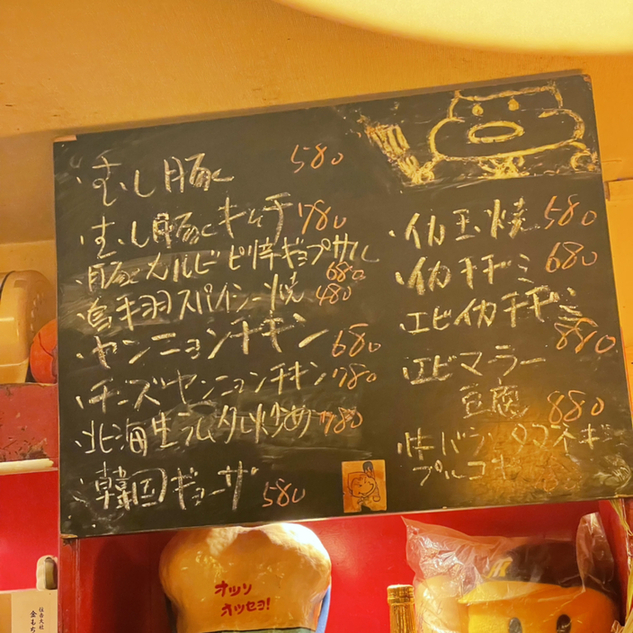 むし豚 580
むし豚とキムチ 780
豚カルビ ピリ辛ギョプサル 680
鳥手羽スパイシー焼 480
ヤンニョンチキン 680
チーズヤンニョンチキン 780
北海生ラム 炒め 780
韓国ギョーザ 580
イカ玉焼 580
イカチヂミ 680
エビイカチヂミ
880
エビマーラー
豆腐 880
牛バラ タマネギ
プルコギ
オッソ
オッセヨ!